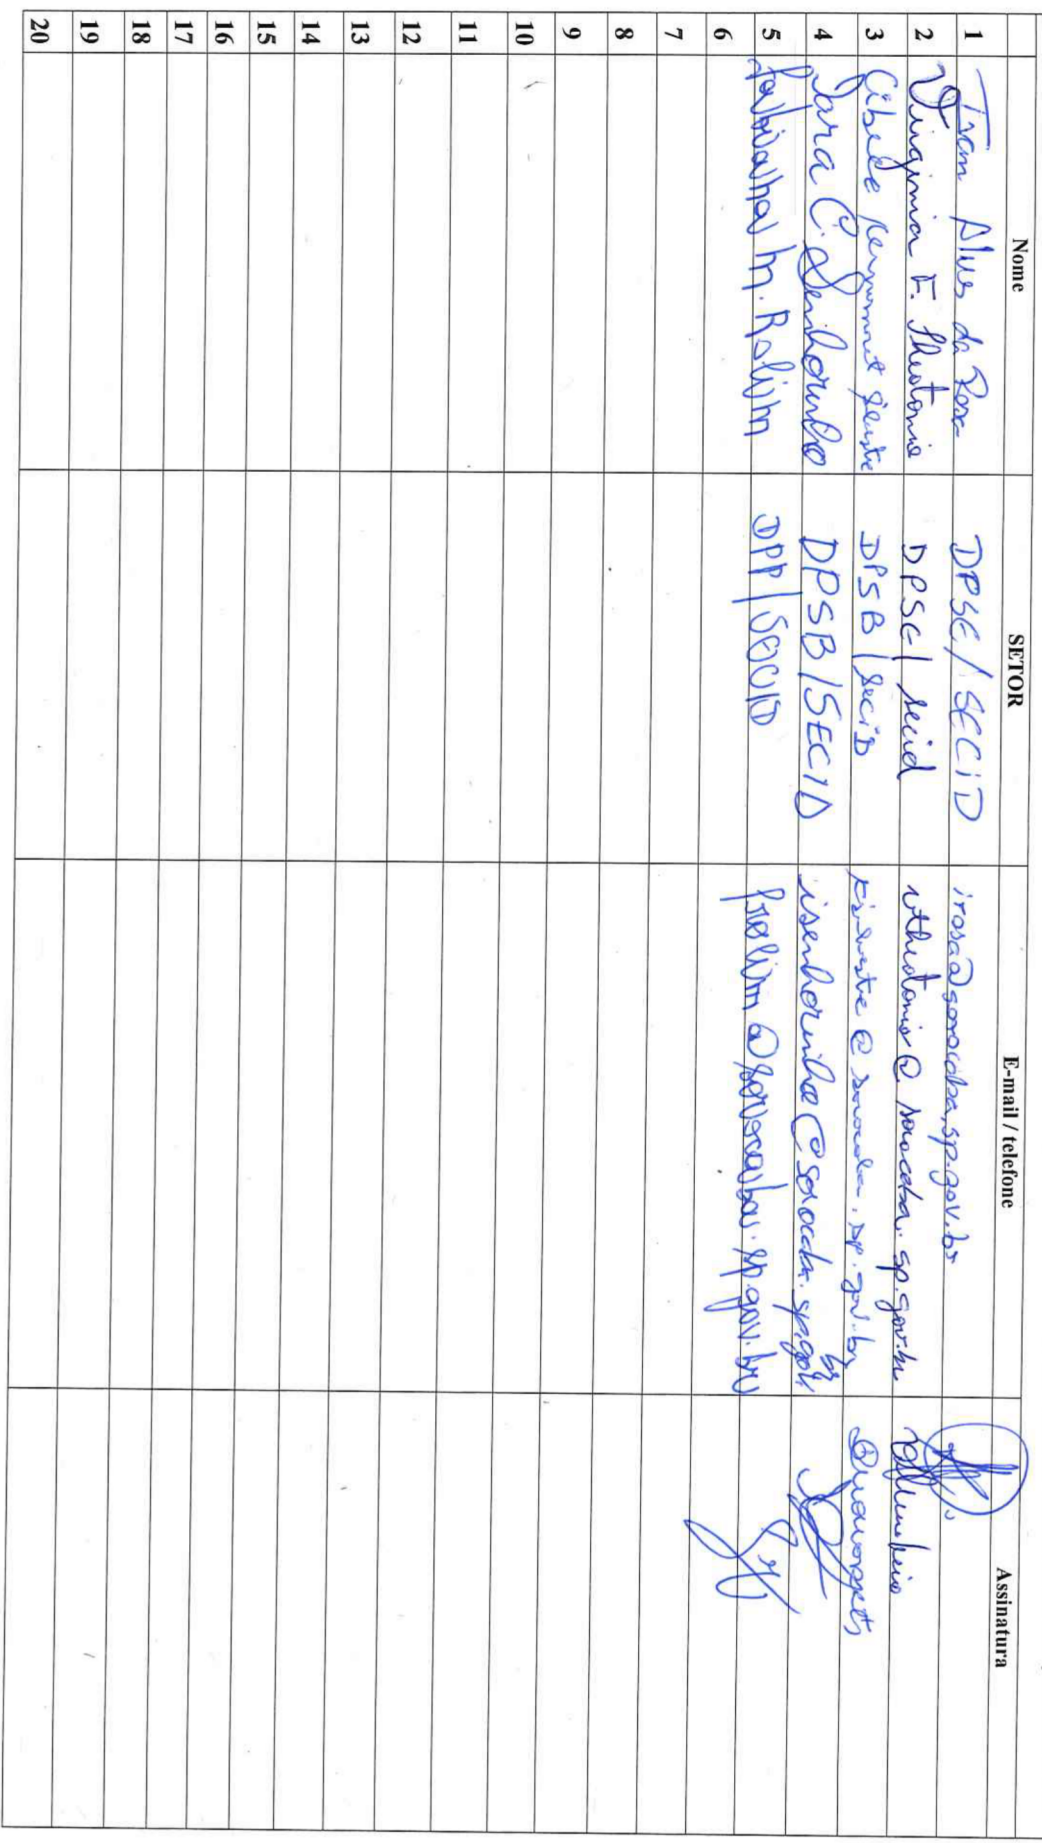 Nome SETOR E-mail / telefone Assinatura
1 Ivan Alves da Rosa DPSE/SECID irosa@sorocaba.sp.gov.br
2 F. Theotonio DPSE/secid vtheotonio@sorocaba.sp.gov.br
3 Cibele DPSB/SeciD @sorocaba.sp.gov.br
4 Iara C. Senhorinho DPSB/SECID isenhorinho@sorocaba.sp.gov.br
5 Fabiana M. Rolim DPP/SECID frolim@sorocaba.sp.gov.br
6
7
8
9
10
11
12
13
14
15
16
17
18
19
20